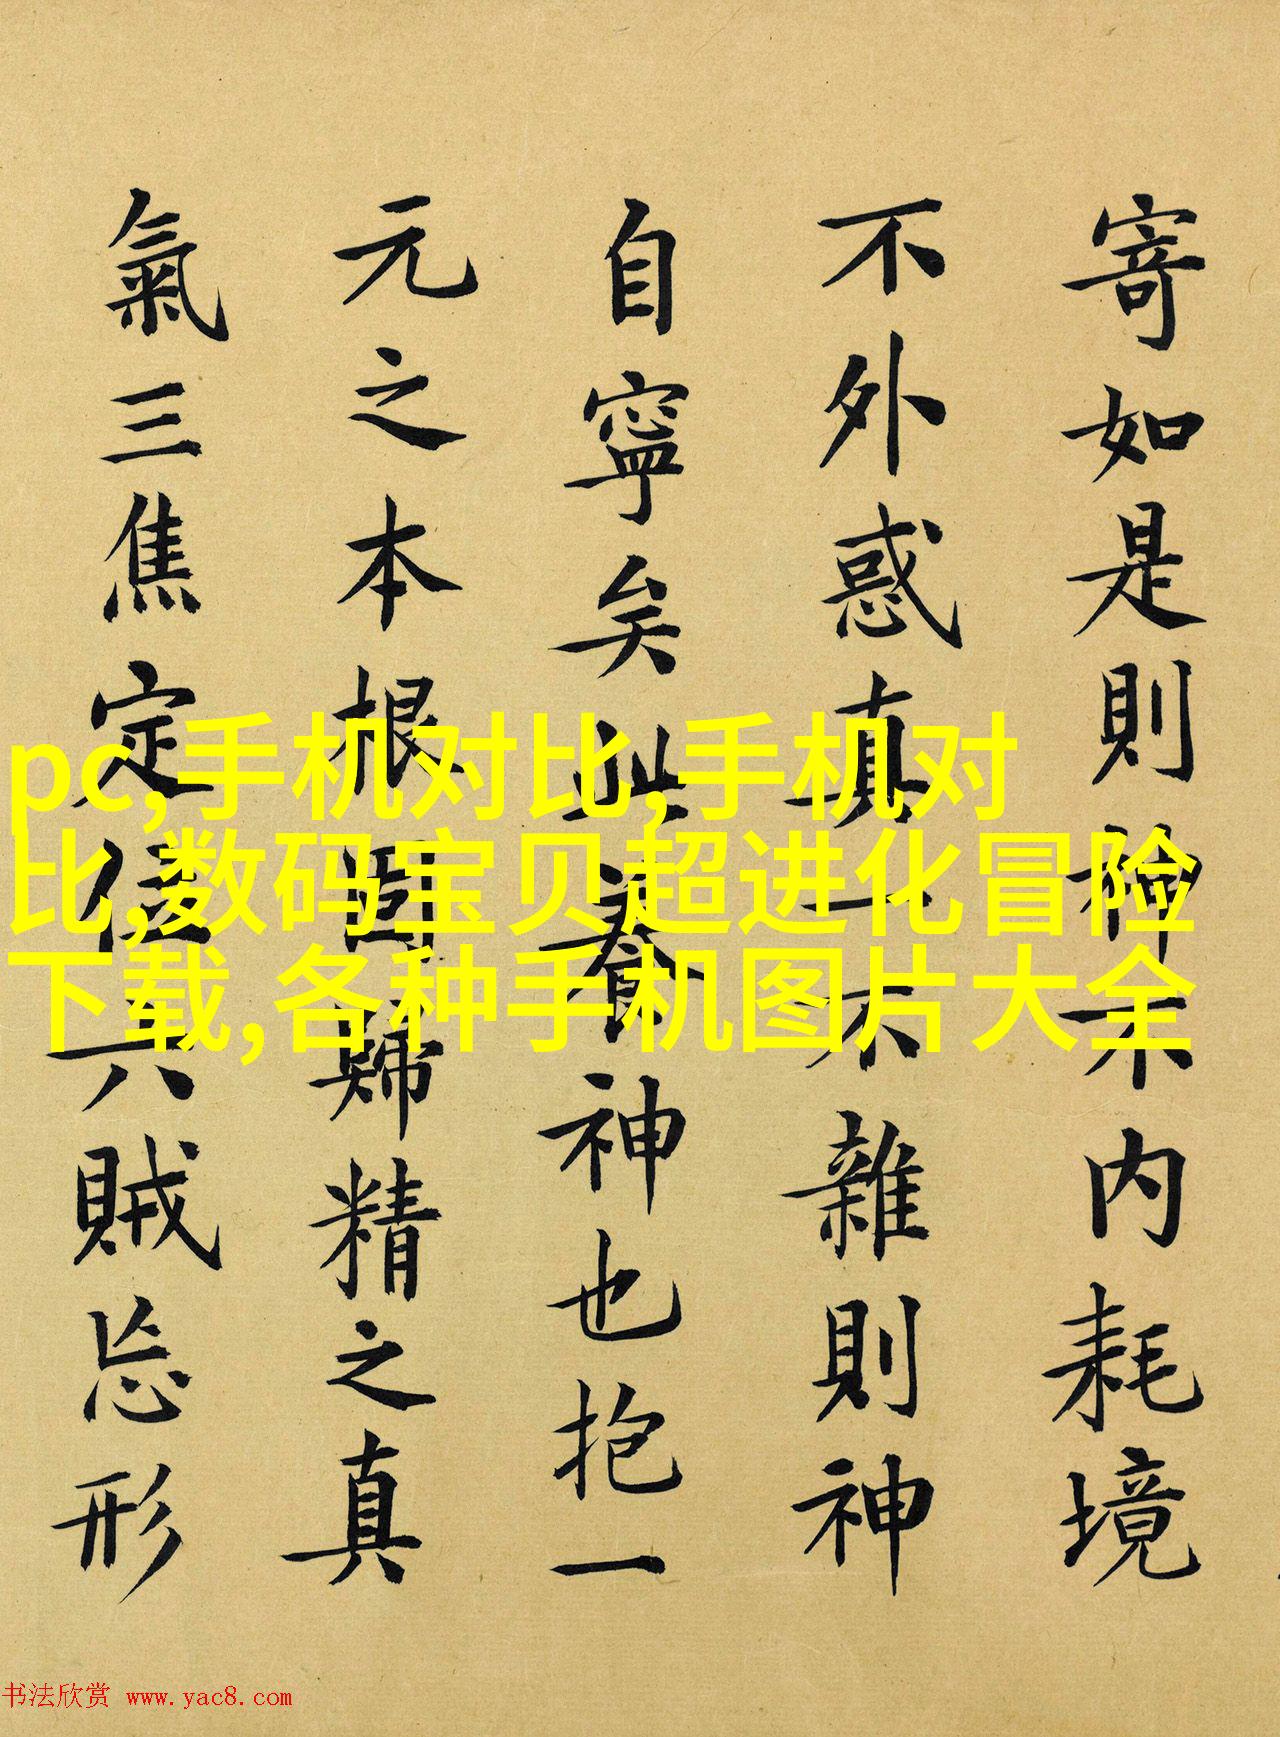 寄如是則神不内耗境
不外惑真一不雜則神
自寧矣此養神也抱一
元之本根固歸精之真
氣三焦定位六賊忘形
pc,手机对比,手机对
比,数码宝贝超进化冒险
下载,各种手机图片大全
书法欣赏 www.yac8.com